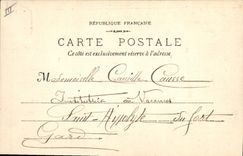 RÉPUBLIQUE FRANÇAISE
CARTE POSTALE
Ce côté est exclusivement réservé à l'adresse.
Mademoiselle Camille Causse
Institutrice en Vacances
Saint Hippolyte du fort
Gard